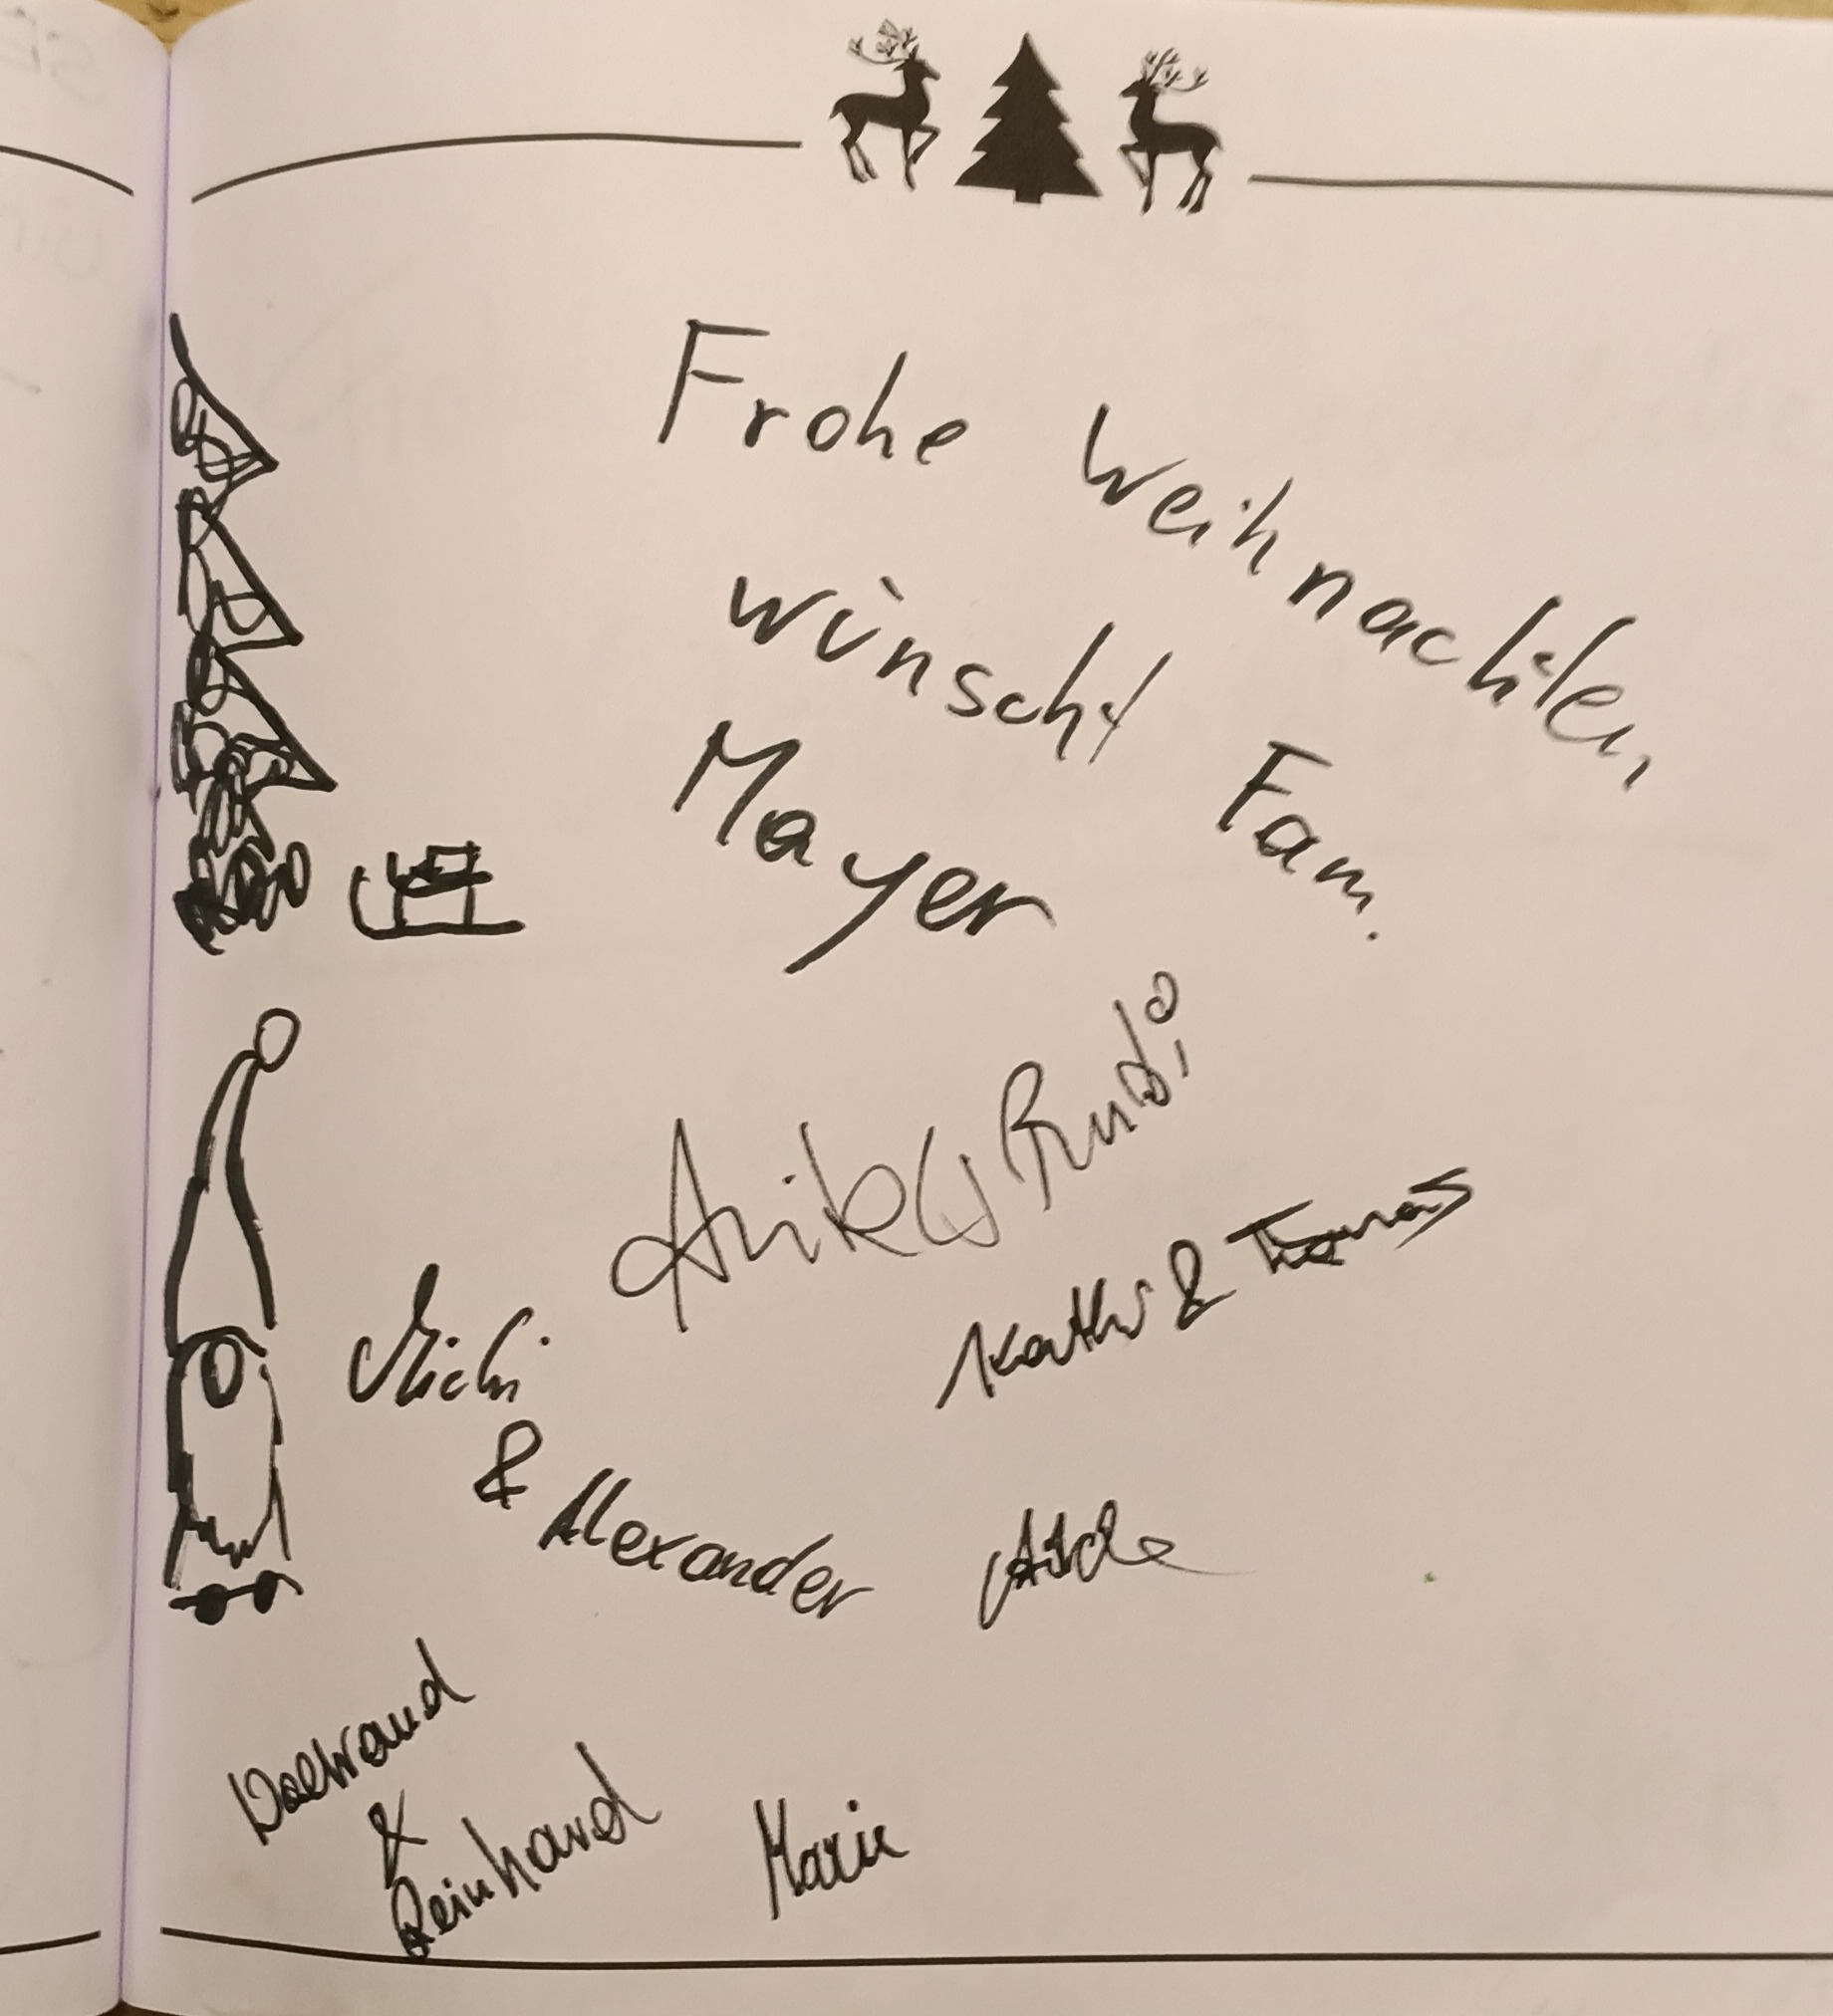 Frohe Weihnachten
wünscht Fam.
Mayer
Rudi
Kathi & Thomas
Michi
& Alexander
Waltraud
&
Reinhard
Marie